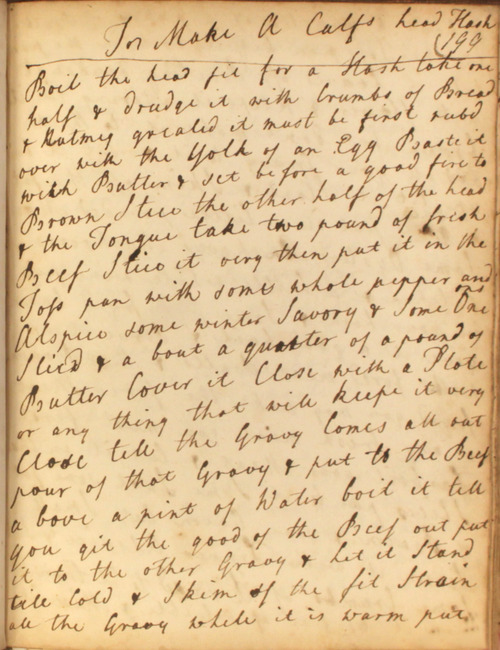 To Make A Calfs head Hash
199
Boil the head fit for a Hash take one
half & drudge it with Crumbs of Bread
& Nutmeg greated it must be first rubd
over with the Yolk of an Egg Baste it
with Butter & set before a good fire to
Brown Slice the other half of the head
& the Tongue take two pound of fresh
Beef Slice it very then put it in the
Toss pan with some whole pepper and
Alspice some winter Savory & Some Onions
Slic'd & a bout a quarter of a pound of
Butter Cover it Close with a Plate
or any thing that will keepe it very
Close tell the Gravy Comes all out
pour of that Gravy & put to the Beef
a bove a pint of Water boil it tell
you git the good of the Beef out put
it to the other Gravy & let it Stand
till Cold & Skim of the fit Strain
all the Gravy while it is warm put